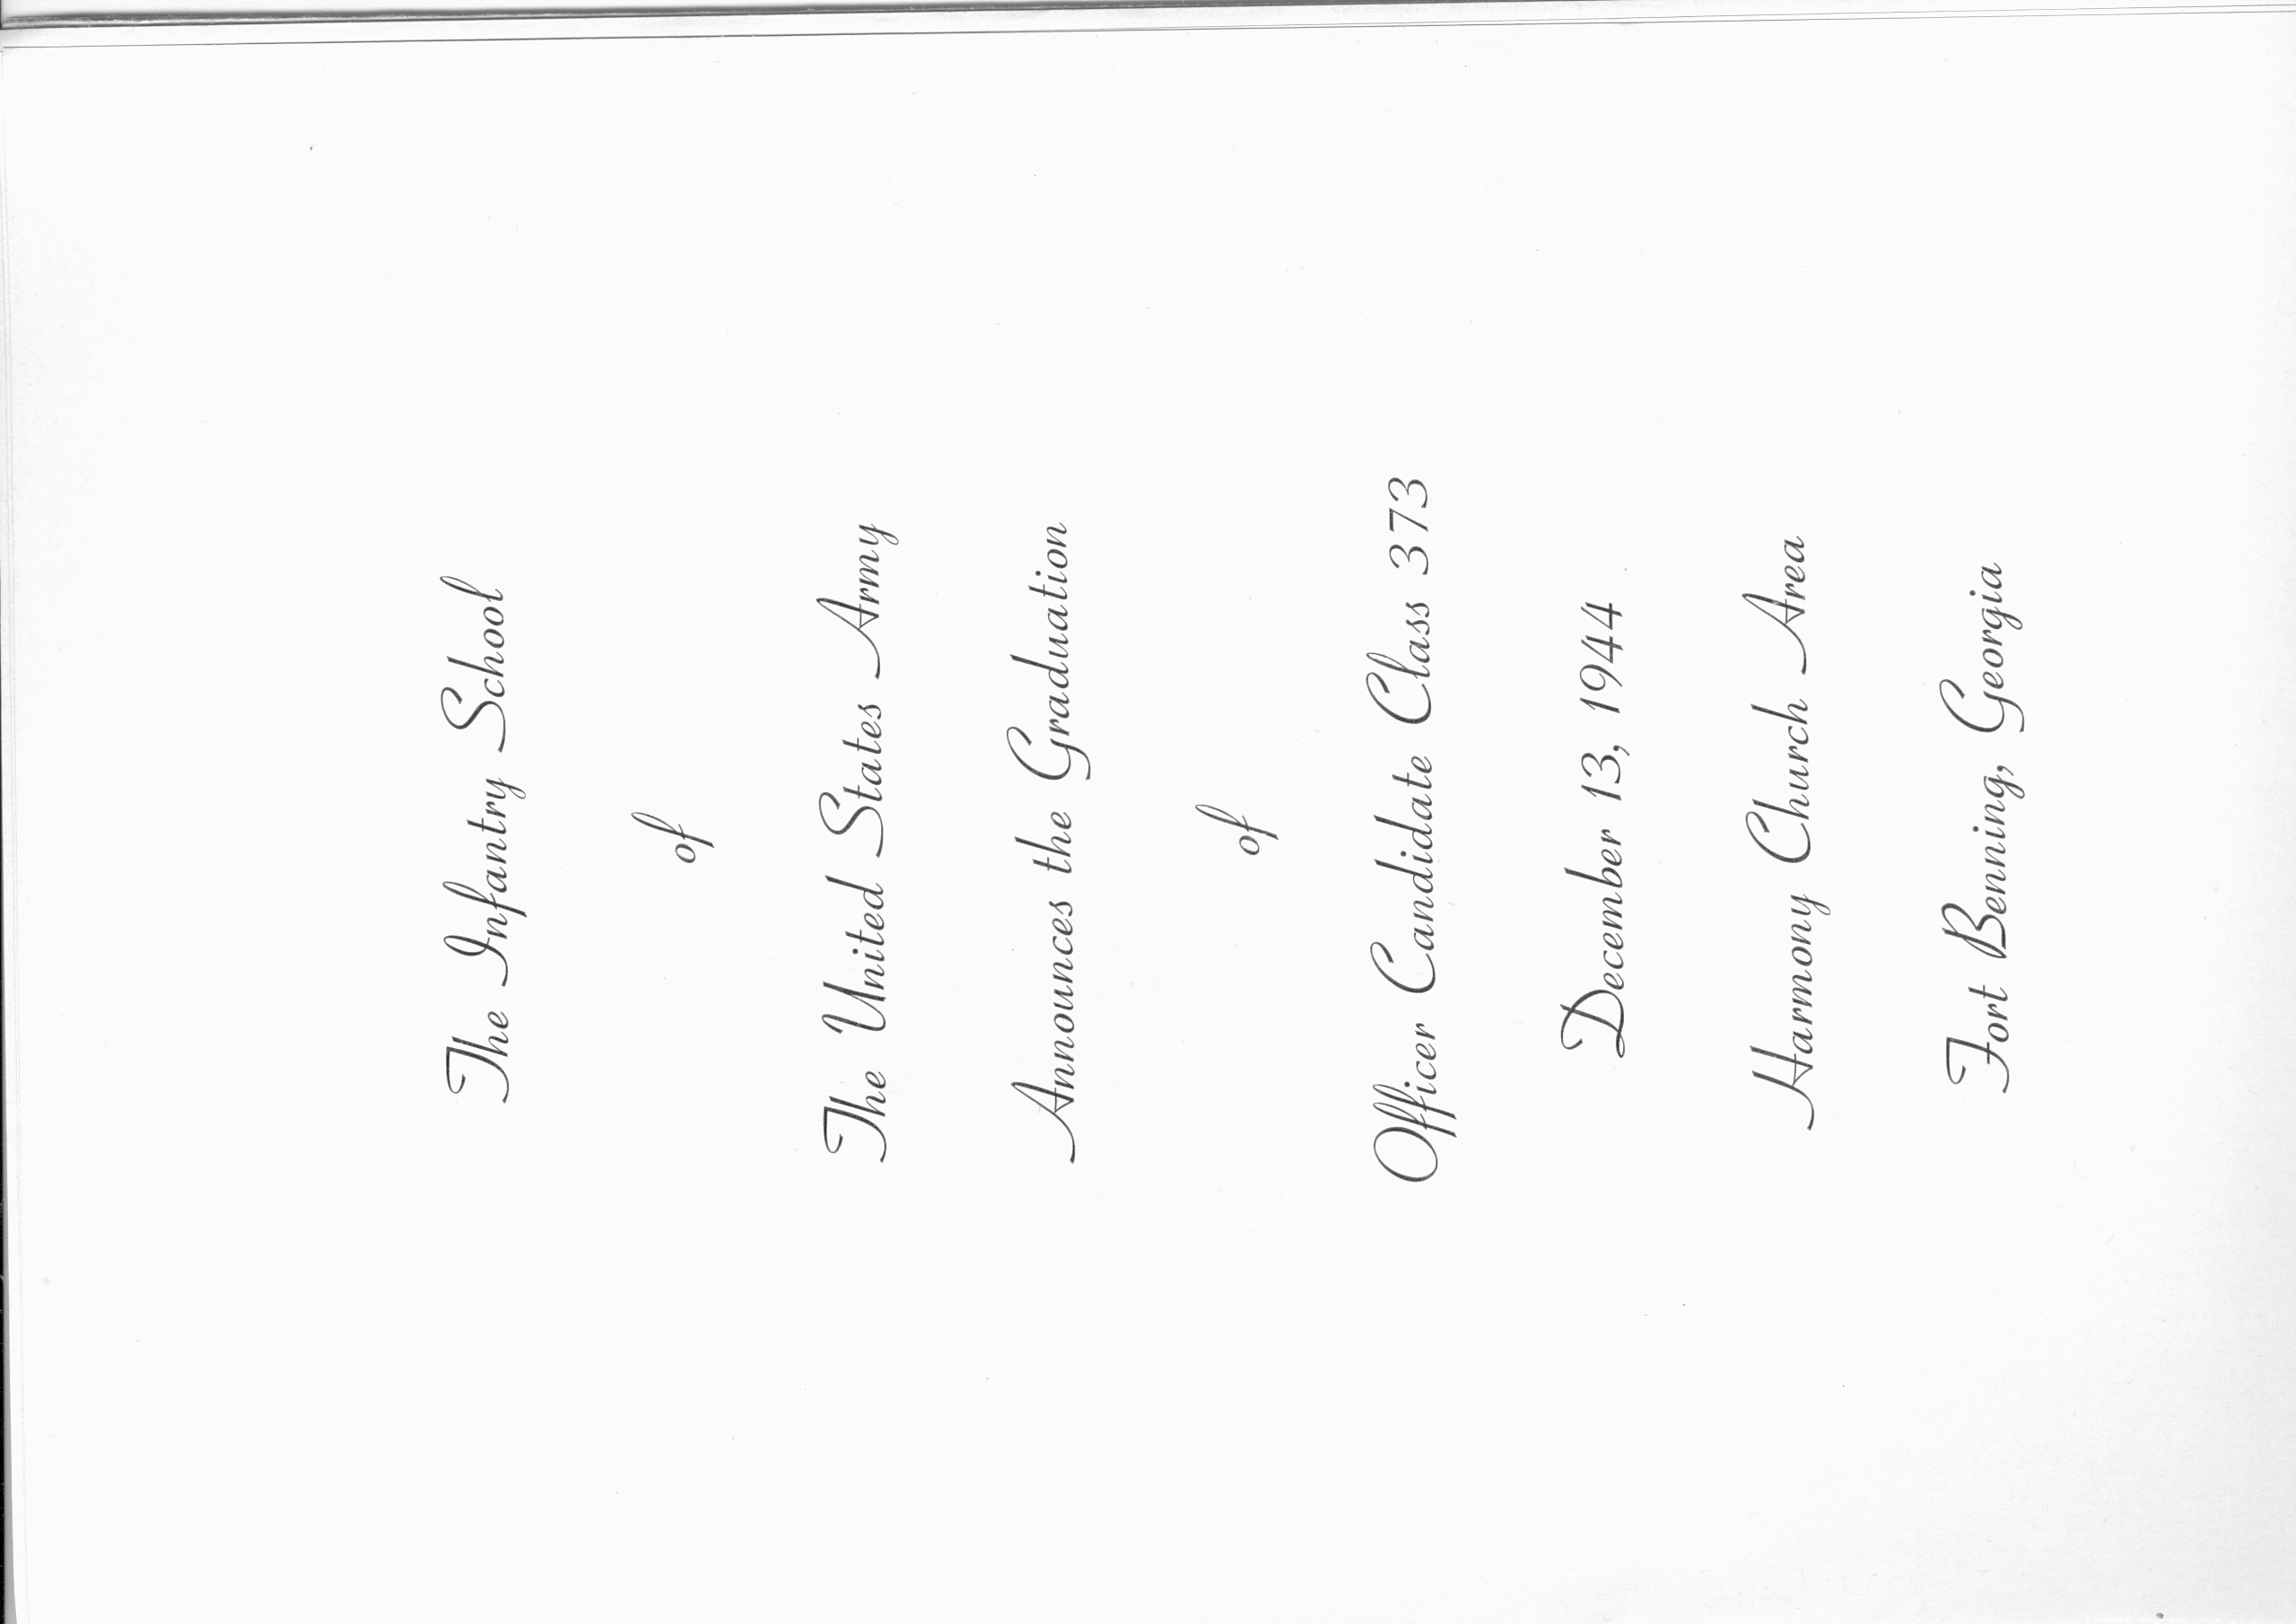 The Infantry School
of
The United States Army
Announces the Graduation
of
Officer Candidate Class 373
December 13, 1944
Harmony Church Area
Fort Benning, Georgia